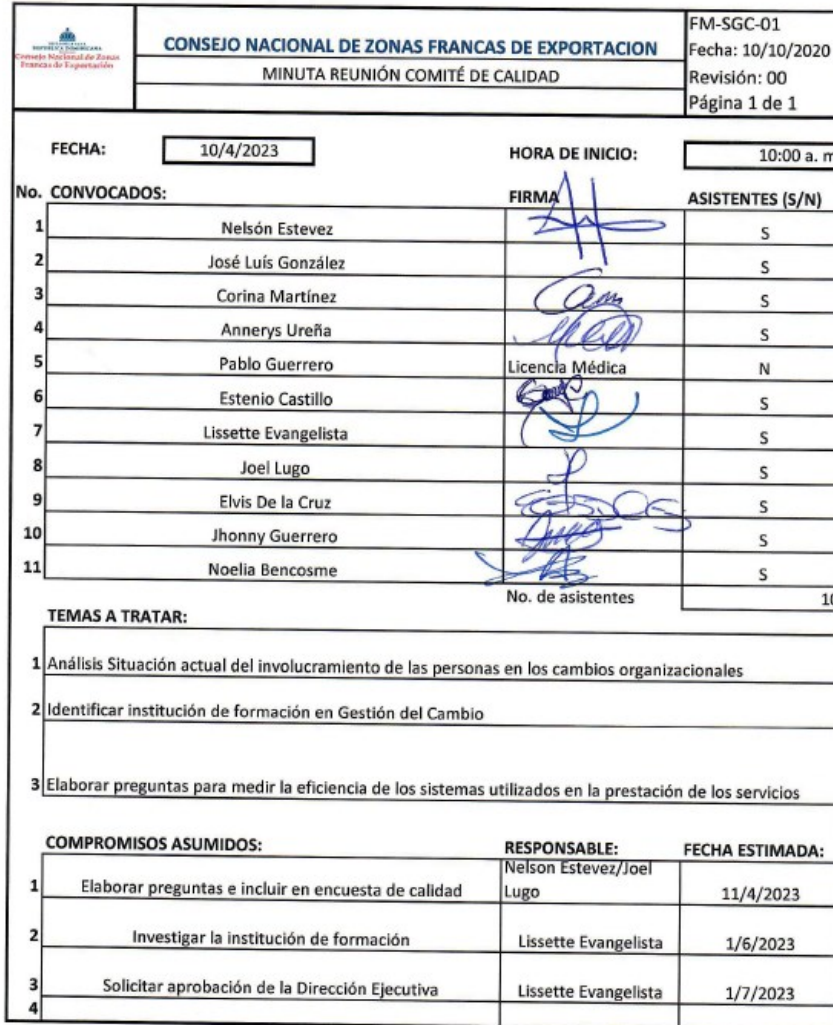 REPÚBLICA DOMINICANA
Consejo Nacional de Zonas
Francas de Exportación
CONSEJO NACIONAL DE ZONAS FRANCAS DE EXPORTACION
MINUTA REUNIÓN COMITÉ DE CALIDAD
FM-SGC-01
Fecha: 10/10/2020
Revisión: 00
Página 1 de 1
FECHA: 10/4/2023 HORA DE INICIO: 10:00 a. m
No. CONVOCADOS: FIRMA ASISTENTES (S/N)
1 Nelsón Estevez S
2 José Luís González S
3 Corina Martínez S
4 Annerys Ureña S
5 Pablo Guerrero Licencia Médica N
6 Estenio Castillo S
7 Lissette Evangelista S
8 Joel Lugo S
9 Elvis De la Cruz S
10 Jhonny Guerrero S
11 Noelia Bencosme S
No. de asistentes 10
TEMAS A TRATAR:
1 Análisis Situación actual del involucramiento de las personas en los cambios organizacionales
2 Identificar institución de formación en Gestión del Cambio
3 Elaborar preguntas para medir la eficiencia de los sistemas utilizados en la prestación de los servicios
COMPROMISOS ASUMIDOS: RESPONSABLE: FECHA ESTIMADA:
1 Elaborar preguntas e incluir en encuesta de calidad Nelson Estevez/Joel Lugo 11/4/2023
2 Investigar la institución de formación Lissette Evangelista 1/6/2023
3 Solicitar aprobación de la Dirección Ejecutiva Lissette Evangelista 1/7/2023
4